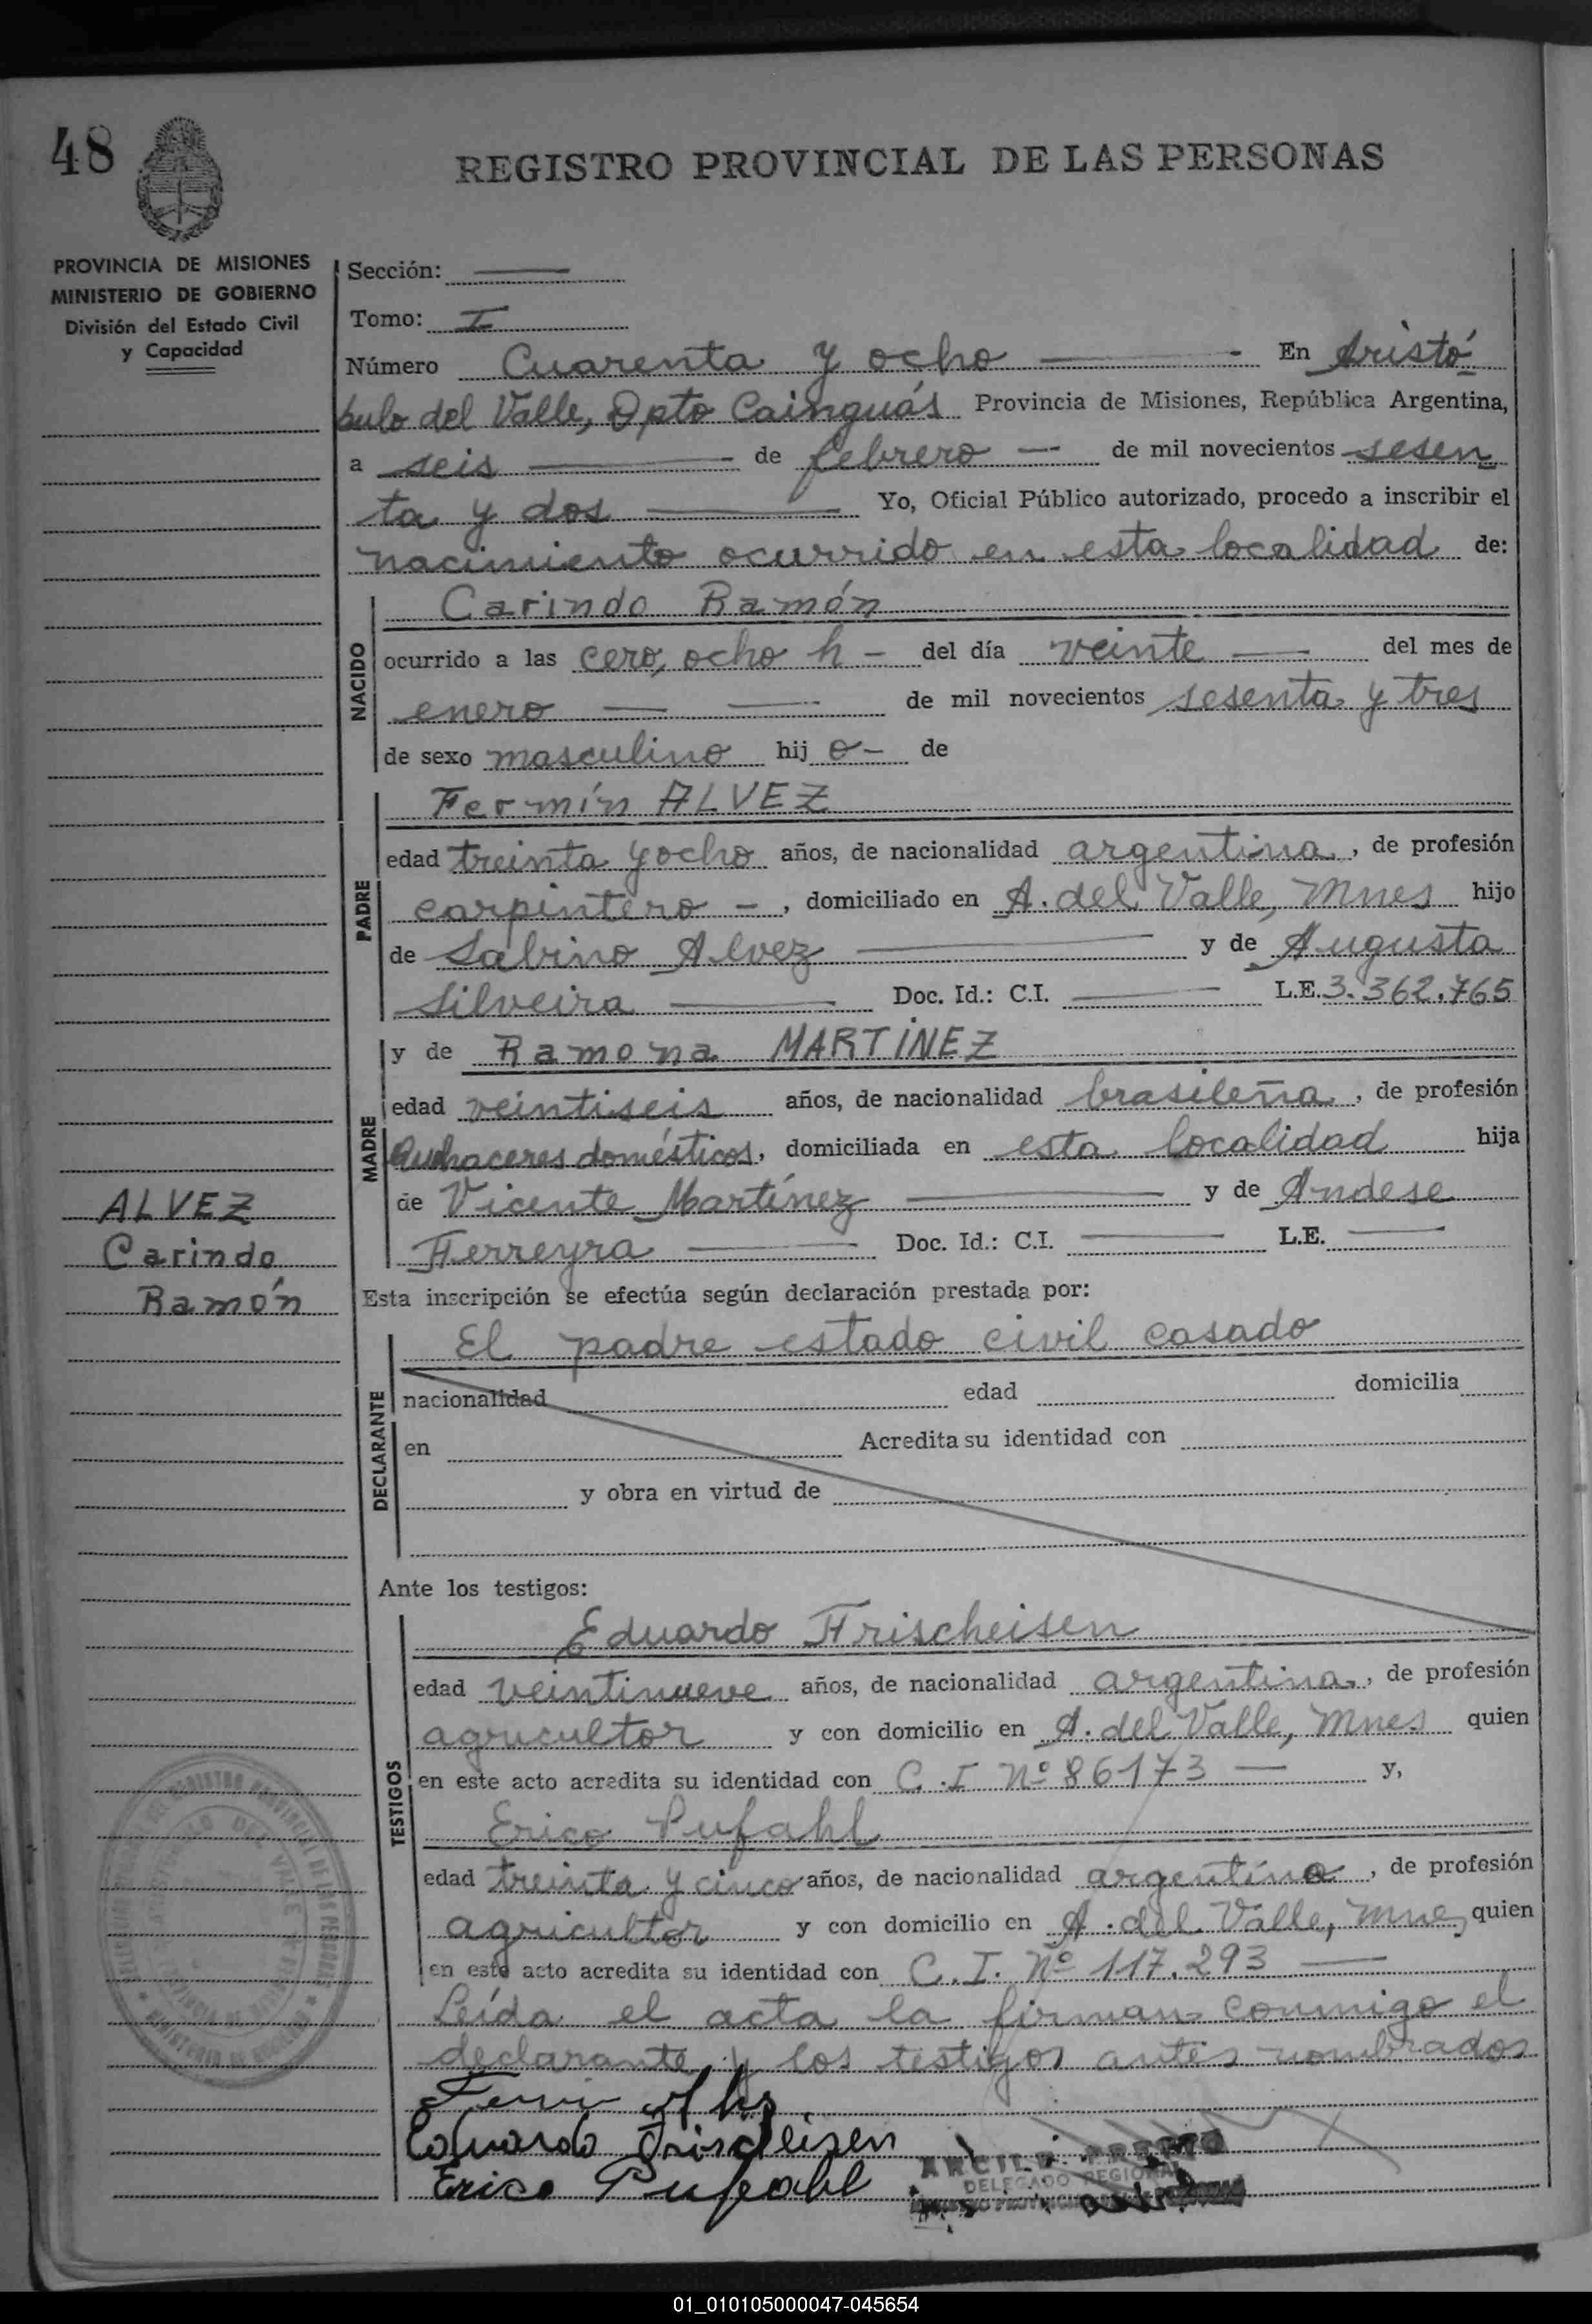 48
REGISTRO PROVINCIAL DE LAS PERSONAS
PROVINCIA DE MISIONES
MINISTERIO DE GOBIERNO
División del Estado Civil
y Capacidad
Sección:
Tomo: I
Número Cuarenta y ocho En Aristó-
bulo del Valle, Dpto Cainguás Provincia de Misiones, República Argentina,
a seis de febrero de mil novecientos sesen
ta y dos Yo, Oficial Público autorizado, procedo a inscribir el
nacimiento ocurrido en esta localidad de:
NACIDO
Carindo Ramón
ocurrido a las cero, ocho h - del día veinte del mes de
enero de mil novecientos sesenta y tres
de sexo masculino hij o - de
PADRE
Fermín ALVEZ
edad treinta y ocho años, de nacionalidad argentina, de profesión
carpintero -, domiciliado en A. del Valle, Mnes hijo
de Sabino Alvez y de Augusta
Silveira Doc. Id.: C.I. L.E. 3.362.765
MADRE
y de Ramona MARTÍNEZ
edad veintiseis años, de nacionalidad brasileña, de profesión
Quehaceres domésticos, domiciliada en esta localidad hija
de Vicente Martínez y de Andese
Ferreyra Doc. Id.: C.I. L.E.
ALVEZ
Carindo
Ramón
Esta inscripción se efectúa según declaración prestada por:
DECLARANTE
El padre estado civil casado
nacionalidad edad domicilia
en Acredita su identidad con
y obra en virtud de
Ante los testigos:
TESTIGOS
Eduardo Frischeisen
edad veintinueve años, de nacionalidad argentina, de profesión
agricultor y con domicilio en A. del Valle, Mnes quien
en este acto acredita su identidad con C.I Nº 86173 y,
Erico Pufahl
edad treinta y cinco años, de nacionalidad argentina, de profesión
agricultor y con domicilio en A. del Valle, Mnes quien
en este acto acredita su identidad con C.I. Nº 117.293
Leída el acta la firman conmigo el
declarante y los testigos antes nombrados
Eduardo Frischeisen
Erico Pufahl
DELEGADO REGIONAL
01_010105000047-045654